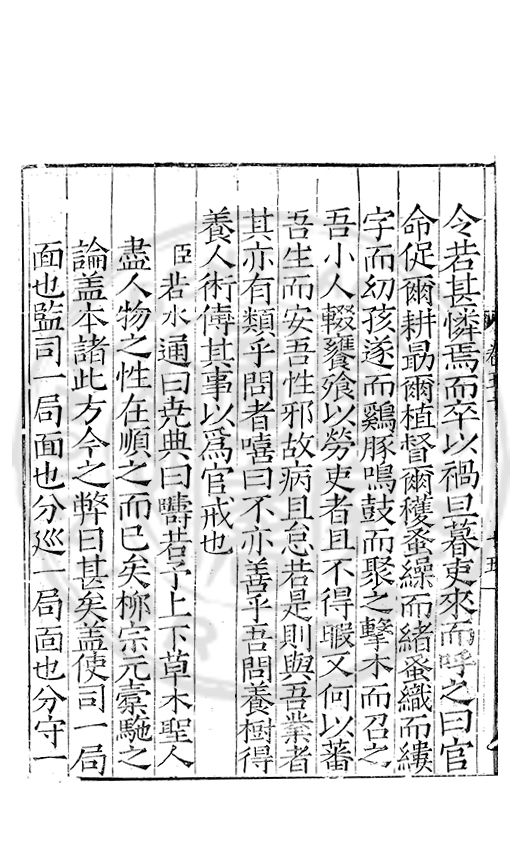 令若甚憐焉而卒以禍旦暮吏來而呼之曰官
命促爾耕勗爾植督爾穫蚤繰而緒蚤織而縷
字而幼孩遂而雞豚鳴鼓而聚之擊木而召之
吾小人輟饔飧以勞吏者且不得暇又何以蕃
吾生而安吾性邪故病且怠若是則與吾業者
其亦有類乎問者嘻曰不亦善乎吾問養樹得
養人術傳其事以爲官戒也
臣若水通曰堯典曰疇若予上下草木聖人
盡人物之性在順之而已矣柳宗元槖駞之
論盖本諸此方今之弊曰甚矣盖使司一局
面也監司一局面也分廵一局面也分守一